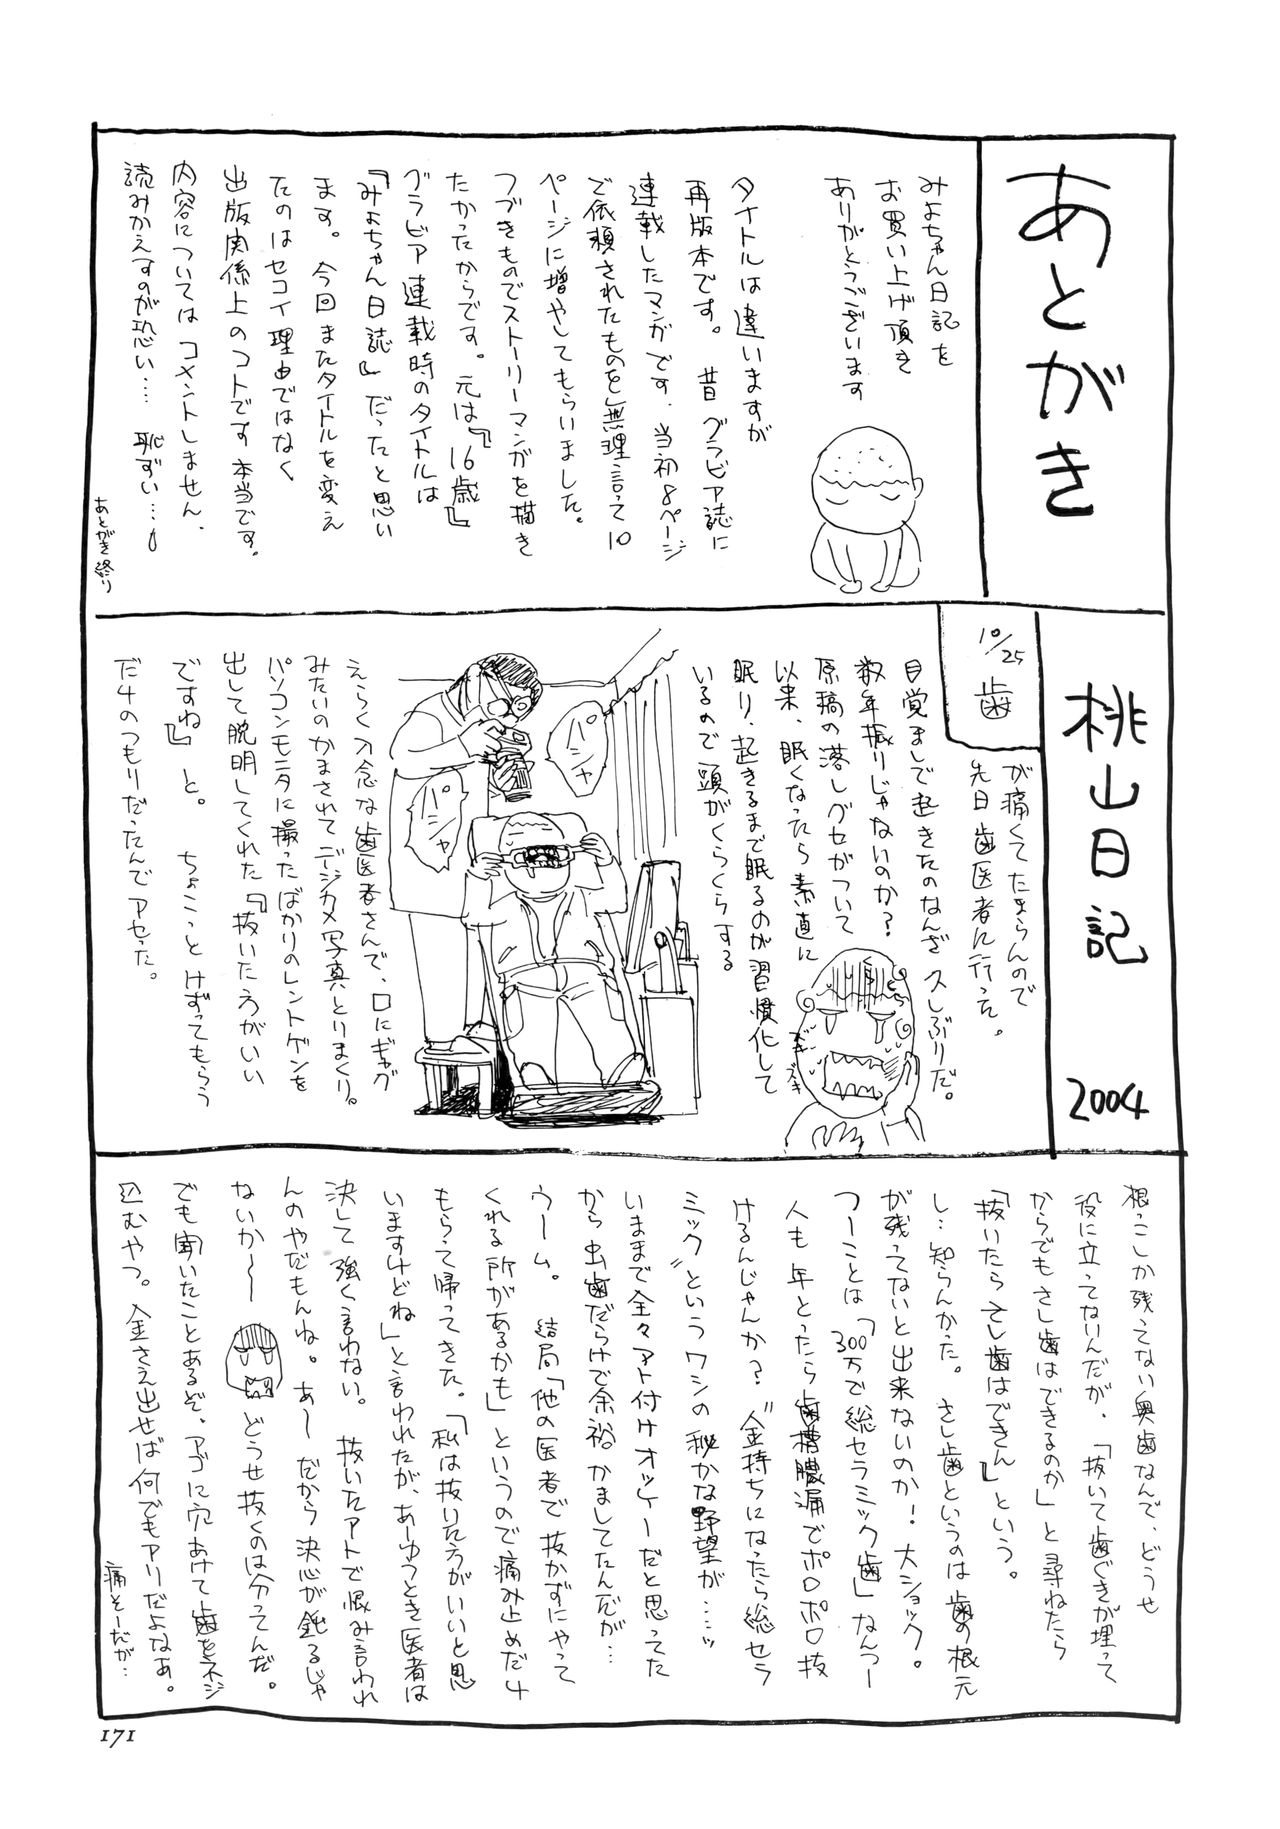 あとがき
みよちゃん日記を
お買い上げ頂き
ありがとうございます
タイトルは違いますが
再版本です。昔グラビア誌に
連載したマンガです、当初8ページ
で依頼されたものを無理言って10
ページに増やしてもらいました。
つづきものでストーリーマンガを描き
たかったからです。元は『16歳』
グラビア連載時のタイトルは
『みよちゃん日誌』だったと思い
ます。今回またタイトルを変え
たのはセコイ理由ではなく
出版関係上のコトです本当です。
内容についてはコメントしません、
読みかえすのが恐い…恥ずい…
あとがき終り
桃山日記 2004
10/25 歯
が痛くてたまらんので
先日歯医者に行った。
目覚ましで起きたのなんざ久しぶりだ。
数年振りじゃないのか?
原稿の落しグセがついて
以来、眠くなったら素直に
眠り、起きるまで眠るのが習慣化して
いるので頭がくらくらする
ズキズキ
パシャ
パシャ
えらく入念な歯医者さんで、口にギャグ
みたいのかまされてデジカメ写真とりまくり。
パソコンモニタに撮ったばかりのレントゲンを
出して説明してくれた『抜いた方がいい
ですね』と。ちょこっとけずってもらう
だ4のつもりだったんでアセった。
根っこしか残ってない奥歯なんで、どうせ
役に立ってないんだが、「抜いて歯ぐきが埋って
からでもさし歯はできるのか」と尋ねたら
「抜いたらさし歯はできん」という。
し…知らんかった。さし歯というのは歯の根元
が残ってないと出来ないのか!大ショック。
つーことは「300万で総セラミック歯」なんつー
人も年とったら歯槽膿漏でポロポロ抜
けるんじゃんか?"金持ちになったら総セラ
ミック"というワシの秘かな野望が……ッ
いままで全々アト付けオッケーだと思ってた
から虫歯だらけで余裕かましてたんだが…
ウーム。結局「他の医者で抜かずにやって
くれる所があるかも」というので痛み止めだ4
もらって帰ってきた。「私は抜いた方がいいと思
いますけどね」と言われたが、あーゆうとき医者は
決して強く言わない。抜いたアトで恨み言われ
んのやだもんね。あーだから決心が鈍るじゃ
ないか〜〜どうせ抜くのは分ってんだ。
でも聞いたことあるぞ、アゴに穴あけて歯をネジ
込むやつ。金さえ出せば何でもアリだよなぁ。
痛そーだが…
171